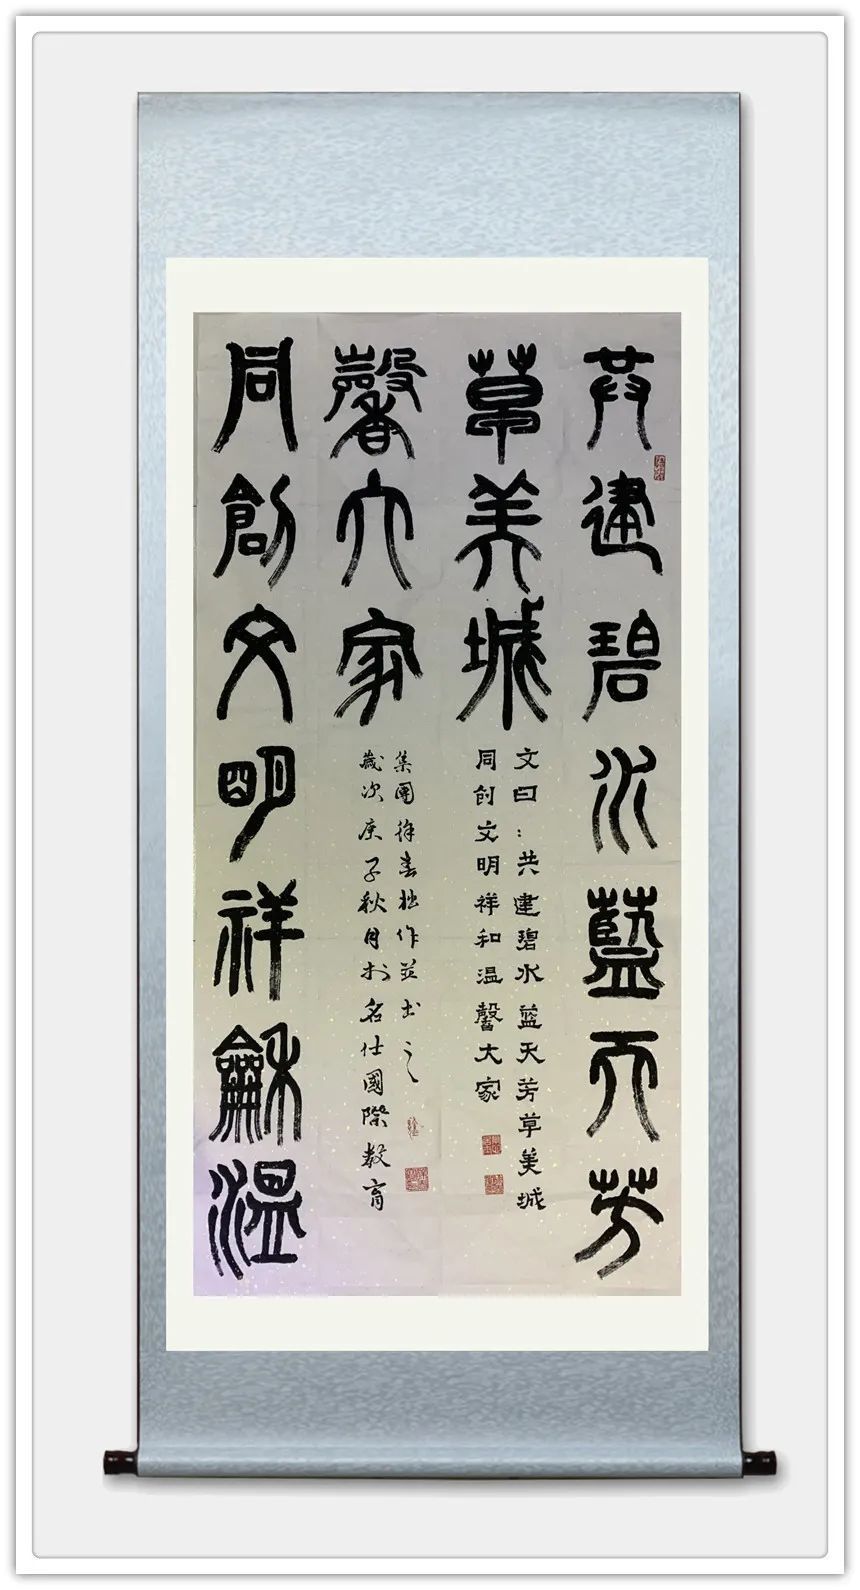 共建碧水藍天芳
草美城
文曰：共建碧水蓝天芳草美城
同创文明祥和温馨大家
同創文明祥龢溫
馨大家
歲次庚子秋月於名仕國際教育
集團徐春作並书之